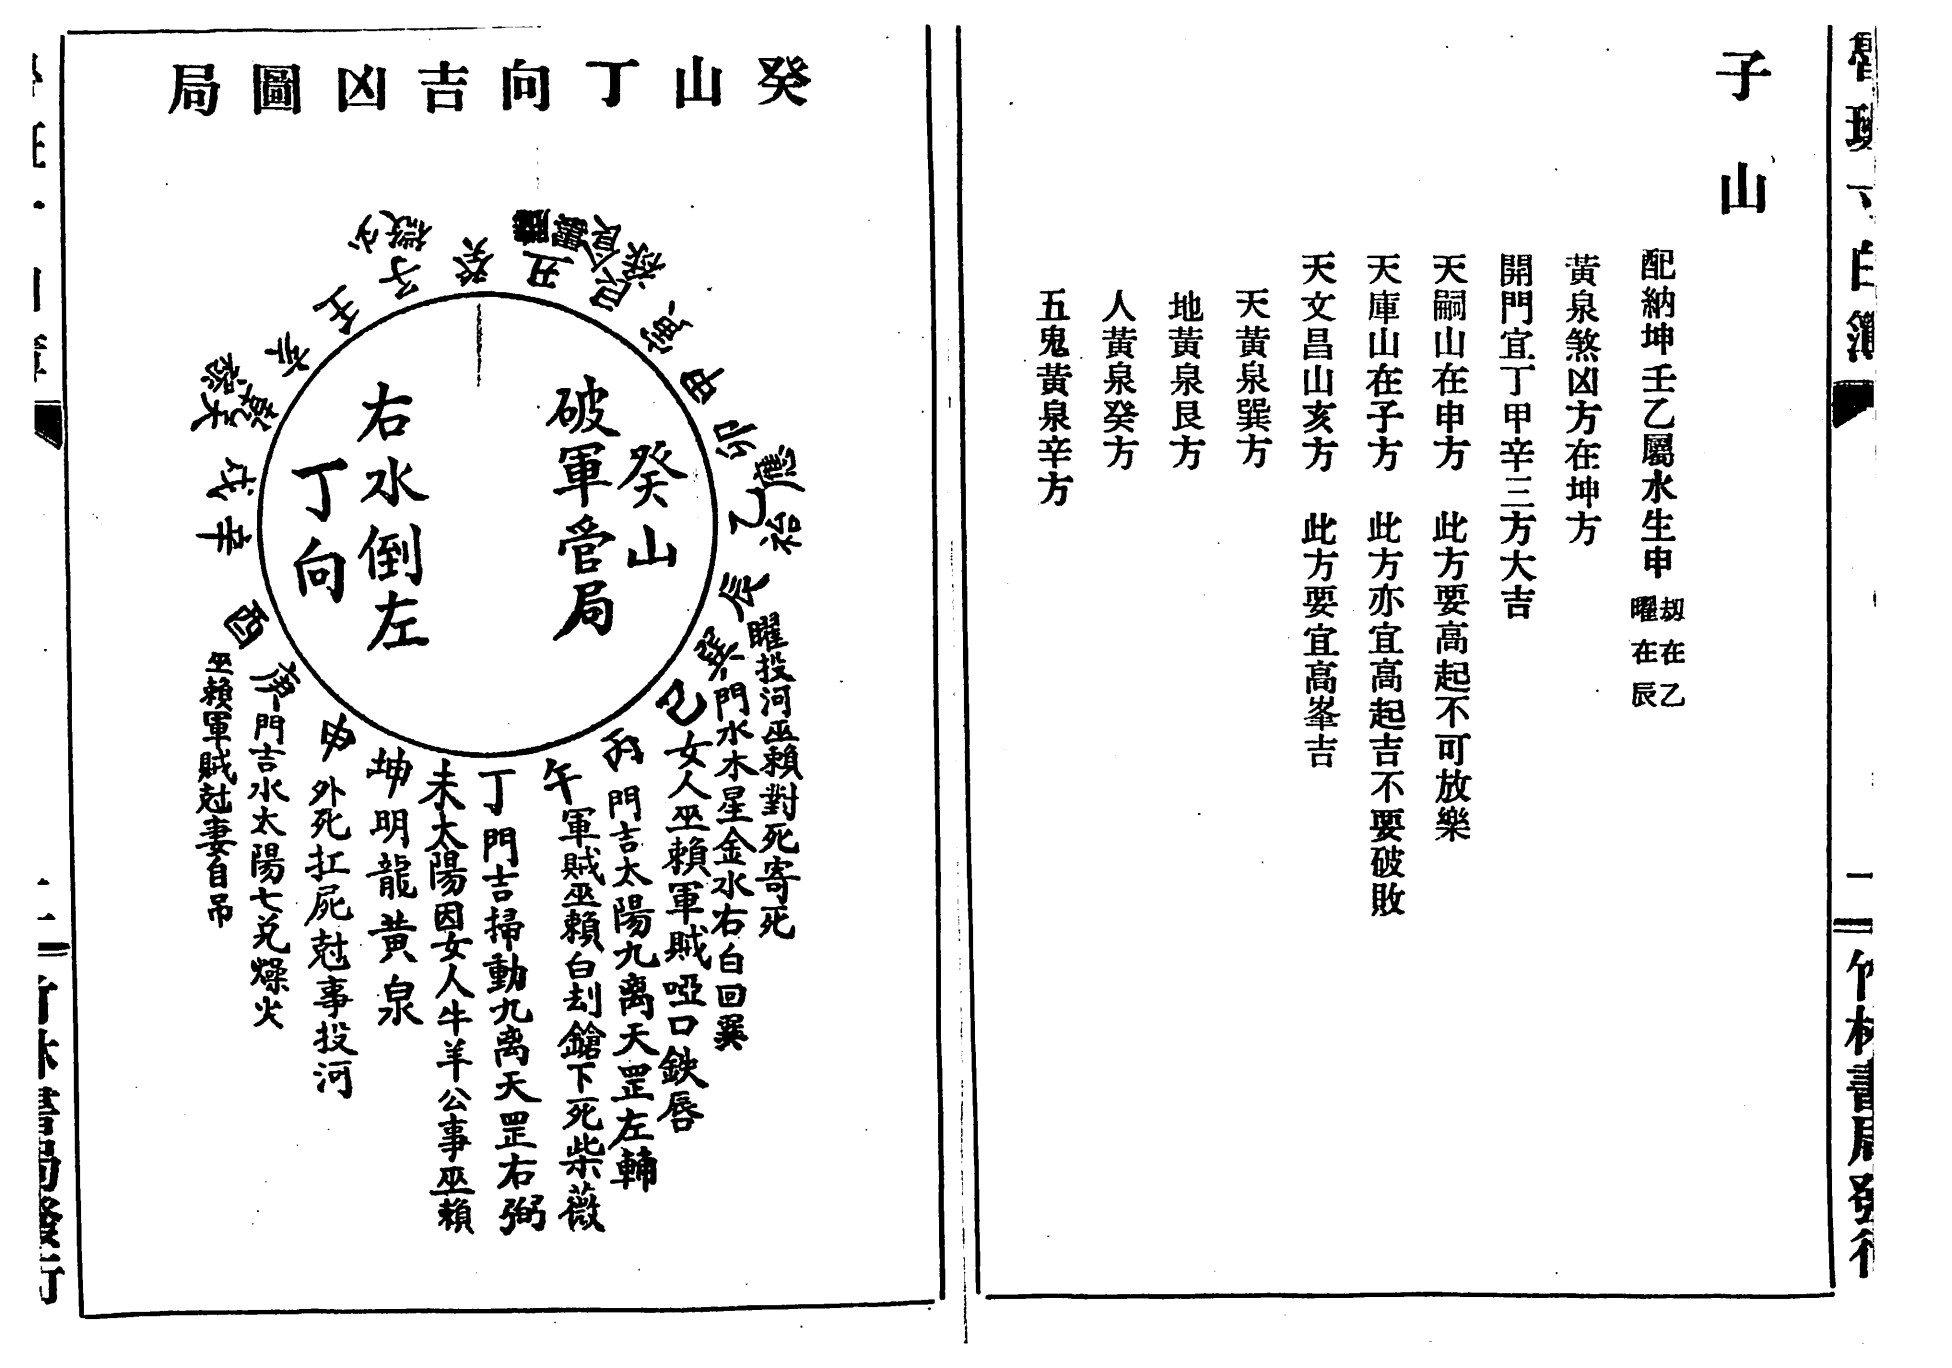 子山
配納坤壬乙屬水生申
刼在乙
曜在辰
黃泉煞凶方在坤方
開門宜丁甲辛三方大吉
天嗣山在申方 此方要高起不可放樂
天庫山在子方 此方亦宜高起吉不要破敗
天文昌山亥方 此方要宜高峯吉
天黃泉巽方
地黃泉艮方
人黃泉癸方
五鬼黃泉辛方
竹林書局發行
癸山丁向吉凶圖局
癸山
破軍管局
右水倒左
丁向
癸
丑
艮
寅
甲
卯
乙
辰
曜投河巫賴對死寄死
巽門水木星金水右白回巽
巳女人巫賴軍賊啞口鈌唇
丙門吉太陽九离天罡左輔
午軍賊巫賴白刦鎗下死柴薇
丁門吉掃動九离天罡右弼
未太陽因女人牛羊公事巫賴
坤明龍黃泉
申外死扛屍尅事投河
庚門吉水太陽七兑燥火
酉
巫賴軍賊尅妻自吊
辛
戌
乾
亥
壬
子
竹林書局發行